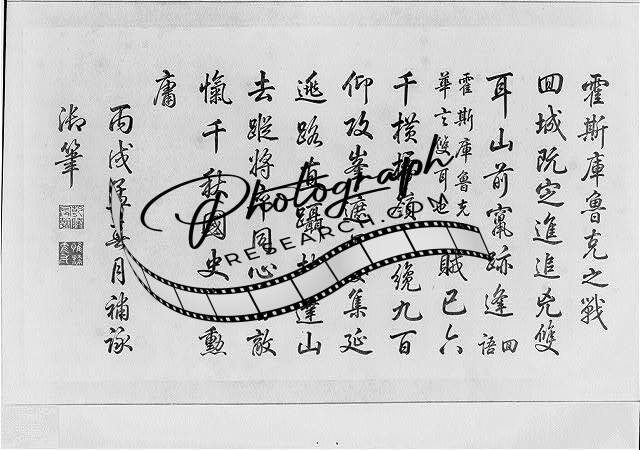 霍斯庫魯克之戰
囬城既定進追兇雙
耳山前竄跡逢囬語
霍斯庫魯克
華言雙耳也
賊已六
千橫嶺纔九百
仰攻峯集延
逃路直躡達山
去蹤將帥同心敵
愾千秋國史勳
庸
丙戌月補詠
御筆
Photograph
RESEARCH.COM